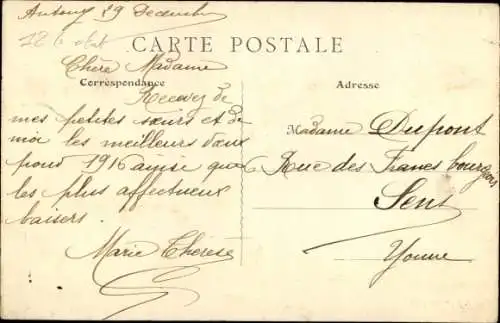 Antony 29 Decembre
CARTE POSTALE
Chère Madame
Correspondance
Recevez de
mes petites sœurs et de
moi les meilleurs vœux
pour 1916 ainsi que
les plus affectueux
baisers.
Marie Thérèse
Adresse
Madame Dupont
6 Rue des Francs bourgeois
Sens
Yonne